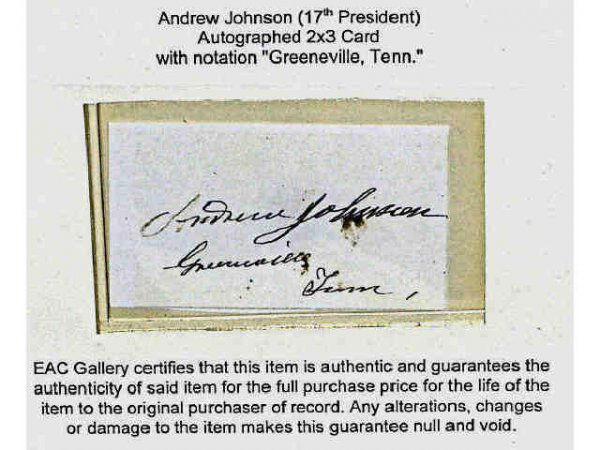 Andrew Johnson (17th President)
Autographed 2x3 Card
with notation "Greeneville, Tenn."
Andrew Johnson
Greeneville
Tenn,
EAC Gallery certifies that this item is authentic and guarantees the
authenticity of said item for the full purchase price for the life of the
item to the original purchaser of record. Any alterations, changes
or damage to the item makes this guarantee null and void.